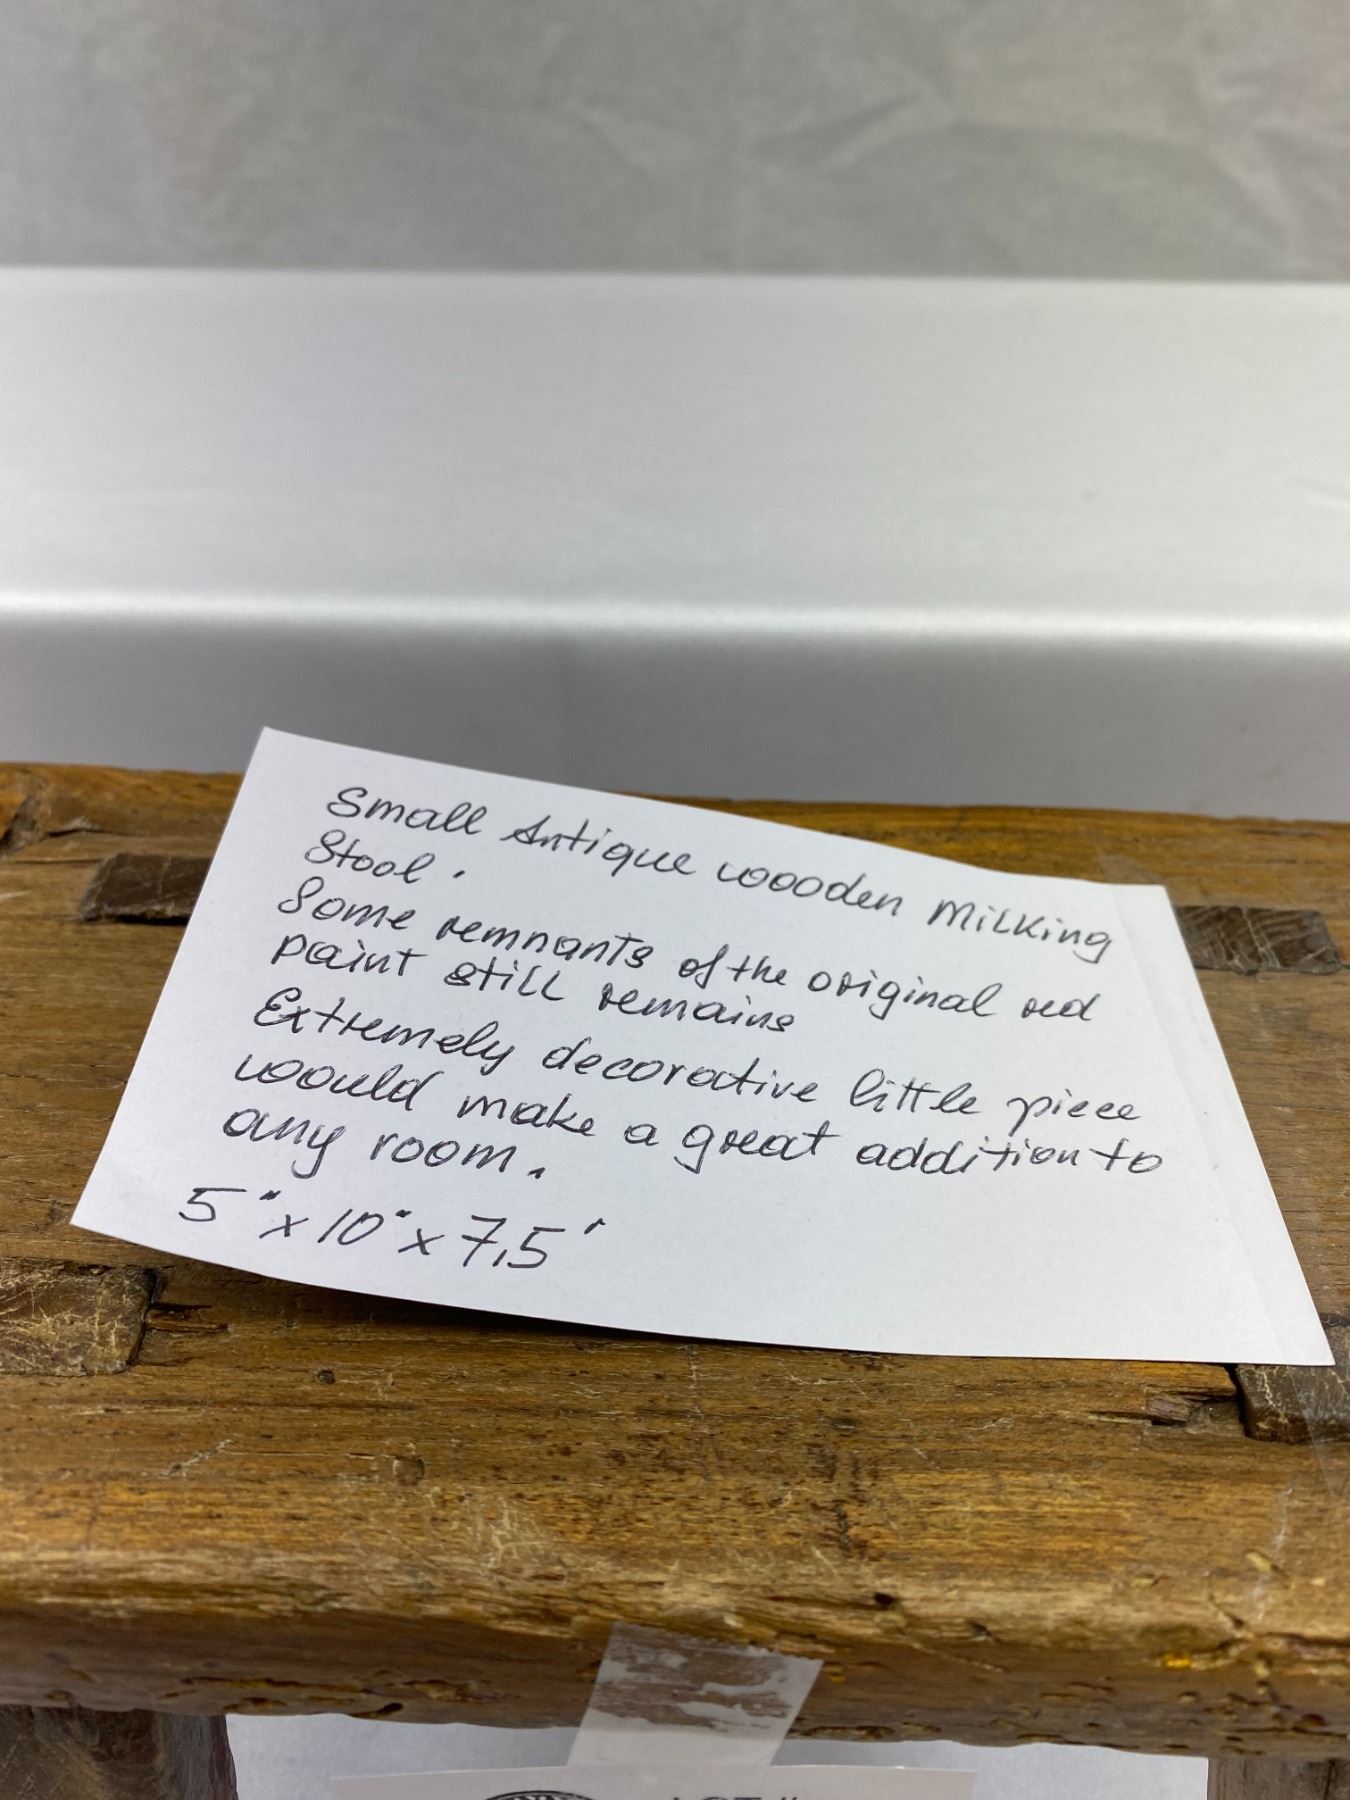 Small Antique woooden Milking
Stool.
Some remnants of the original red
paint still remains
Extremely decorative little piece
woould make a great addition to
any room.
5" x 10" x 7,5'
LOT #